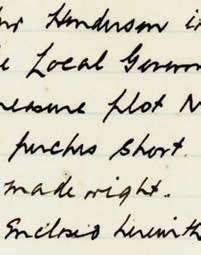 Mr Henderson in
e Local Governm
measure plot N
perches short.
made right.
Enclosed herewith